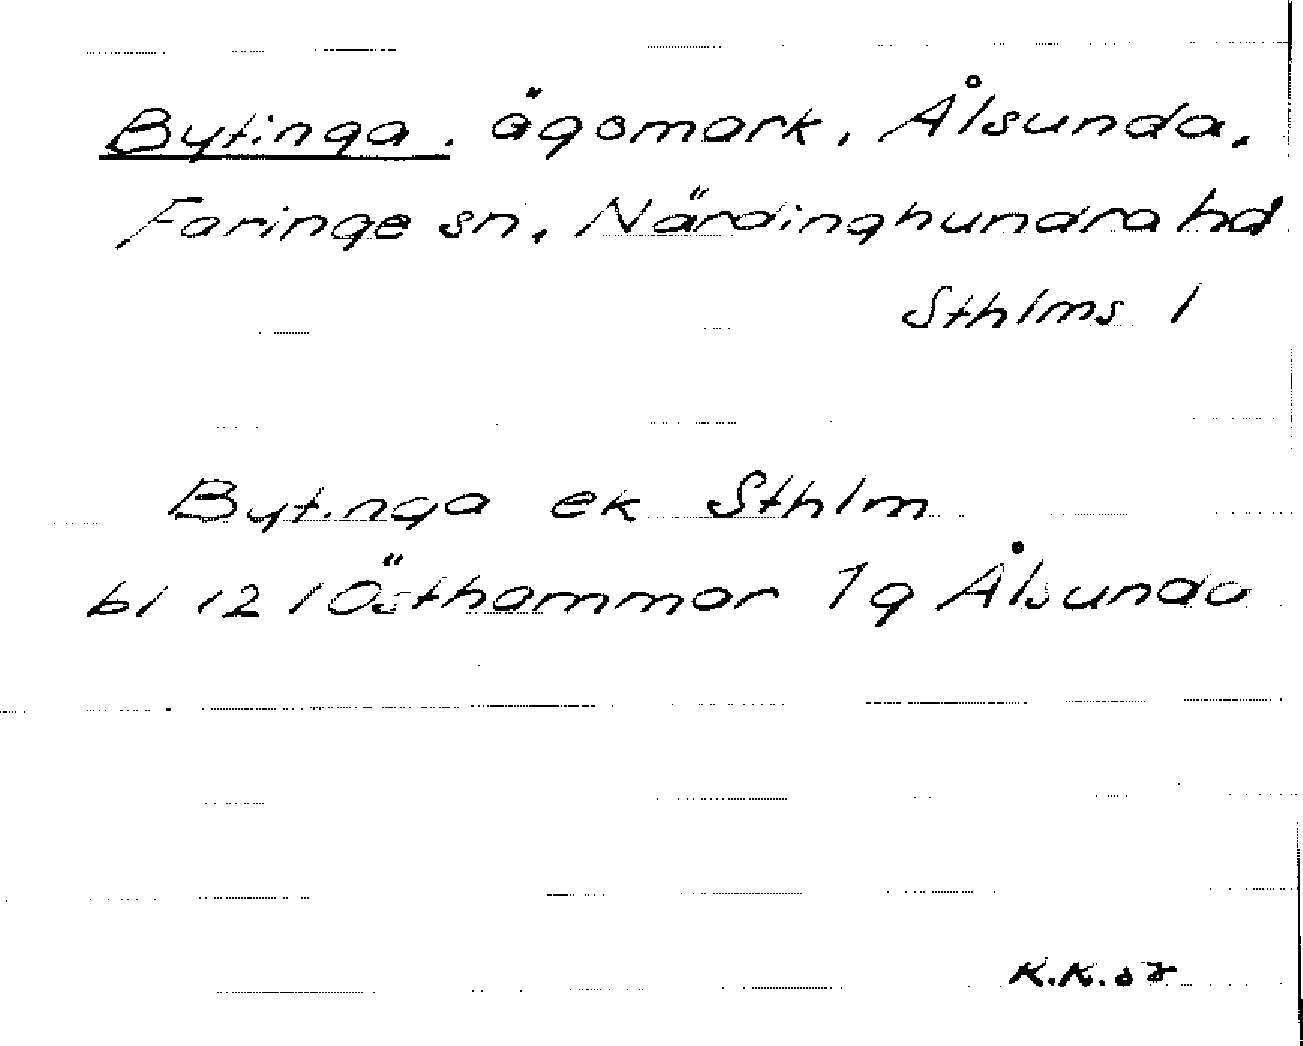 Bytinga, ägomark, Ålsunda,
Faringe sn, Närdinghundra hd
Sthlms l
Bytinga ek Sthlm
bl 12 l Östhammar 1q Ålsunda
K.K. 57